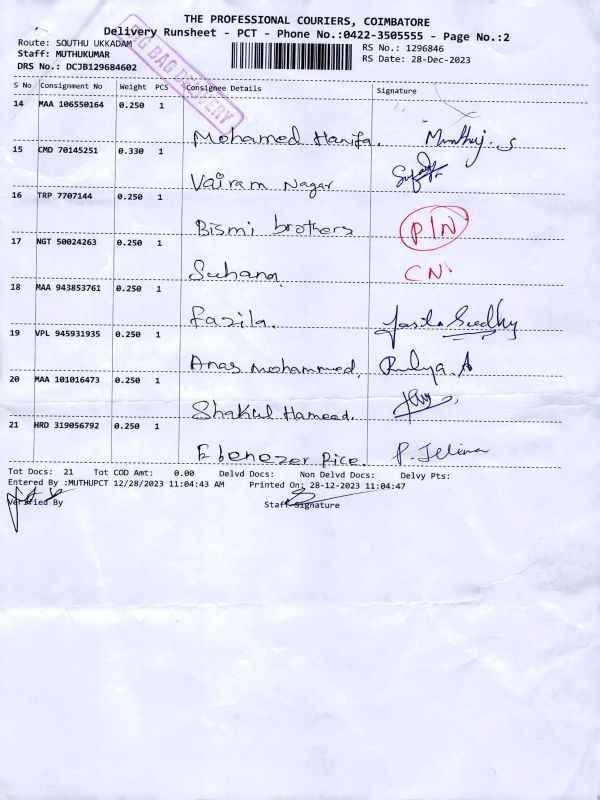 THE PROFESSIONAL COURIERS, COIMBATORE
Delivery Runsheet - PCT - Phone No.:0422-3505555 - Page No.:2
Route: SOUTHU UKKADAM
RS No.: 1296846
Staff: MUTHUKUMAR
RS Date: 28-Dec-2023
DRS No.: DCJB129684602
BIG BAG DELIVERY
S No Consignment No Weight PCS Consignee Details Signature
14 MAA 106550164 0.250 1
Mohamed Hanifa.
15 CMD 70145251 0.330 1
Vairam Nagar
16 TRP 7707144 0.250 1
Bismi brothers P/N
17 NGT 50024263 0.250 1
Suhana CN
18 MAA 943853761 0.250 1
Fazila.
19 VPL 945931935 0.250 1
Anas Mohammed,
20 MAA 101016473 0.250 1
Shakul Hameed.
21 HRD 319056792 0.250 1
Ebenezer Rice. P. Jelina
Tot Docs: 21 Tot COD Amt: 0.00 Delvd Docs: Non Delvd Docs: Delvy Pts:
Entered By :MUTHUPCT 12/28/2023 11:04:43 AM Printed On: 28-12-2023 11:04:47
Verified By Staff Signature